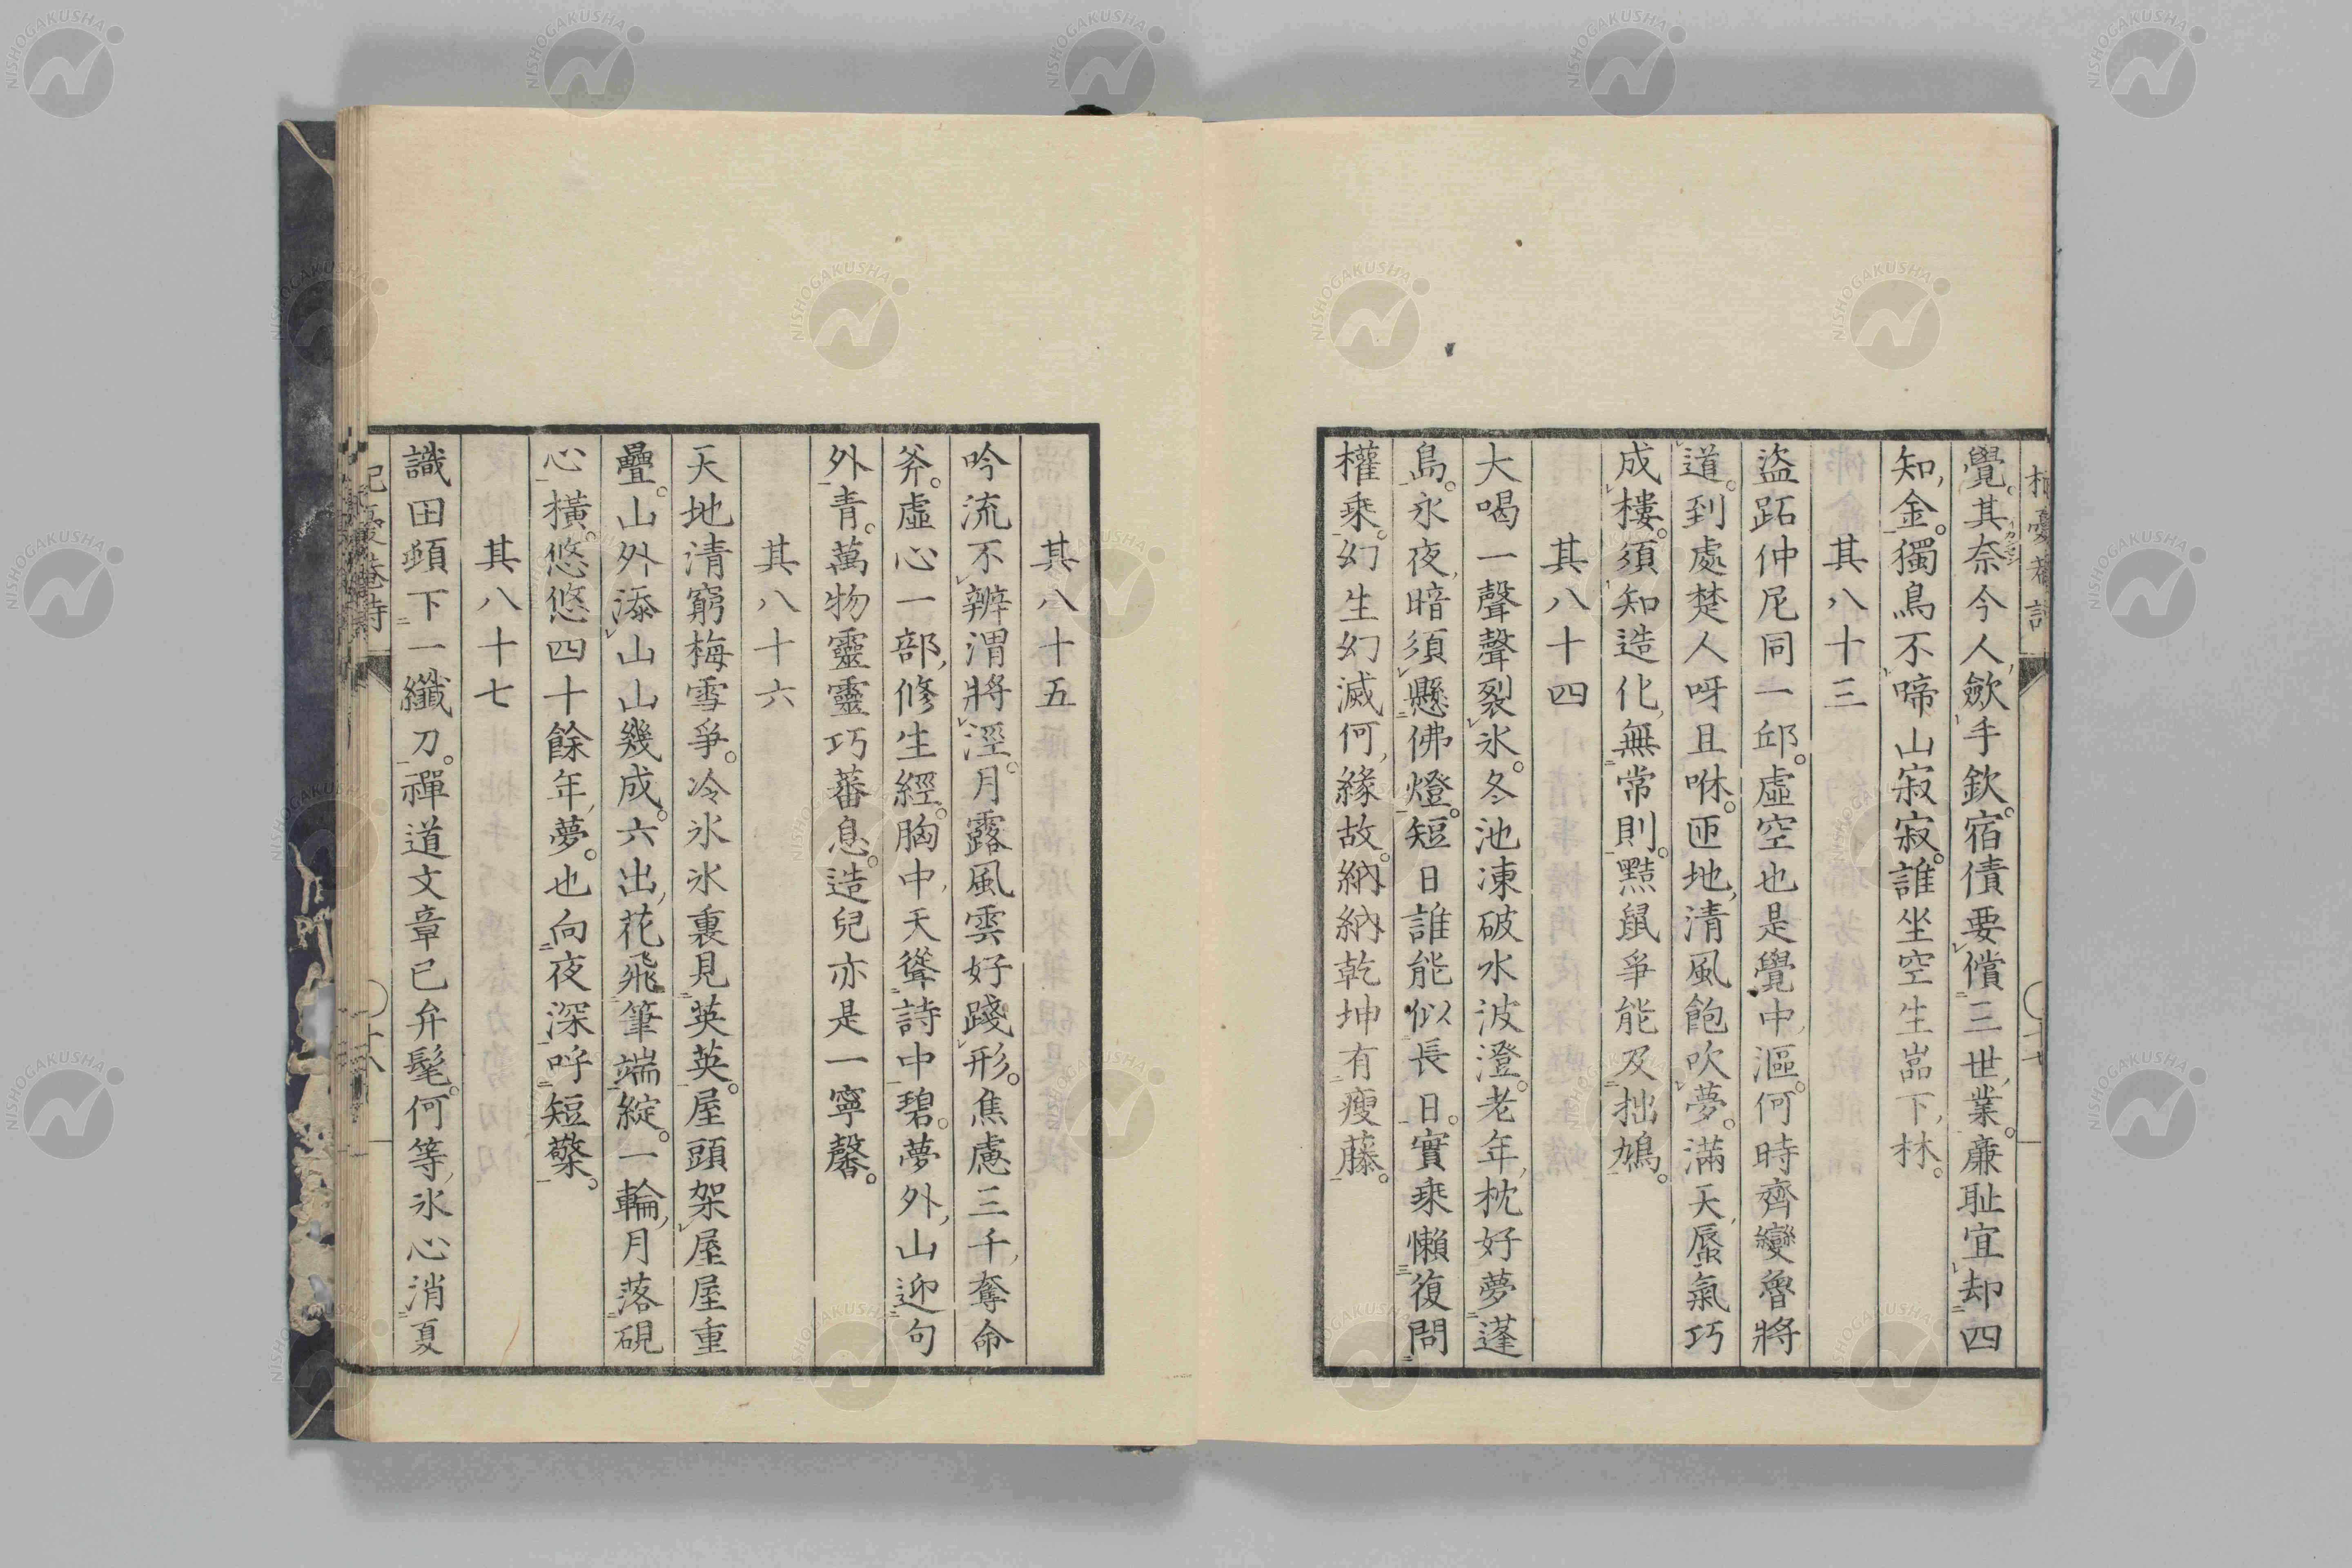 覺。其奈今人歛手欽。宿債要償三世業。廉耻宜却四
知金。獨鳥不啼山寂寂。誰坐空生嵓下林。
其八十三
盜跖仲尼同一邱。虛空也是覺中漚。何時齊變魯將
道。到處楚人呀且咻。匝地清風飽吹夢。滿天蜃氣巧
成樓。須知造化無常則。黠鼠爭能及拙鳩。
其八十四
大喝一聲聲裂氷。冬池凍破水波澄。老年枕好夢蓬
島。永夜暗須懸佛燈。短日誰能似長日。實乘懶復問
權乘。幻生幻滅何緣故。納納乾坤有瘦藤。
其八十五
吟流不辨渭將涇。月露風雲好踐形。焦慮三千奪命
斧。虛心一部修生經。胸中天聳詩中碧。夢外山迎句
外青。萬物靈靈巧蕃息。造兒亦是一寧馨。
其八十六
天地清窮梅雪爭。冷氷氷裏見英英。屋頭架屋屋重
疊。山外添山山幾成。六出花飛筆端綻。一輪月落硯
心橫。悠悠四十餘年夢。也向夜深呼短檠。
其八十七
識田頻下一纖刀。禪道文章已弁髦。何等氷心消夏
NISHOGAKUSHA